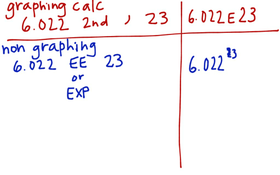 graphing calc
6.022 2nd , 23 6.022E23
non graphing
6.022 EE 23 6.022²³
or
EXP